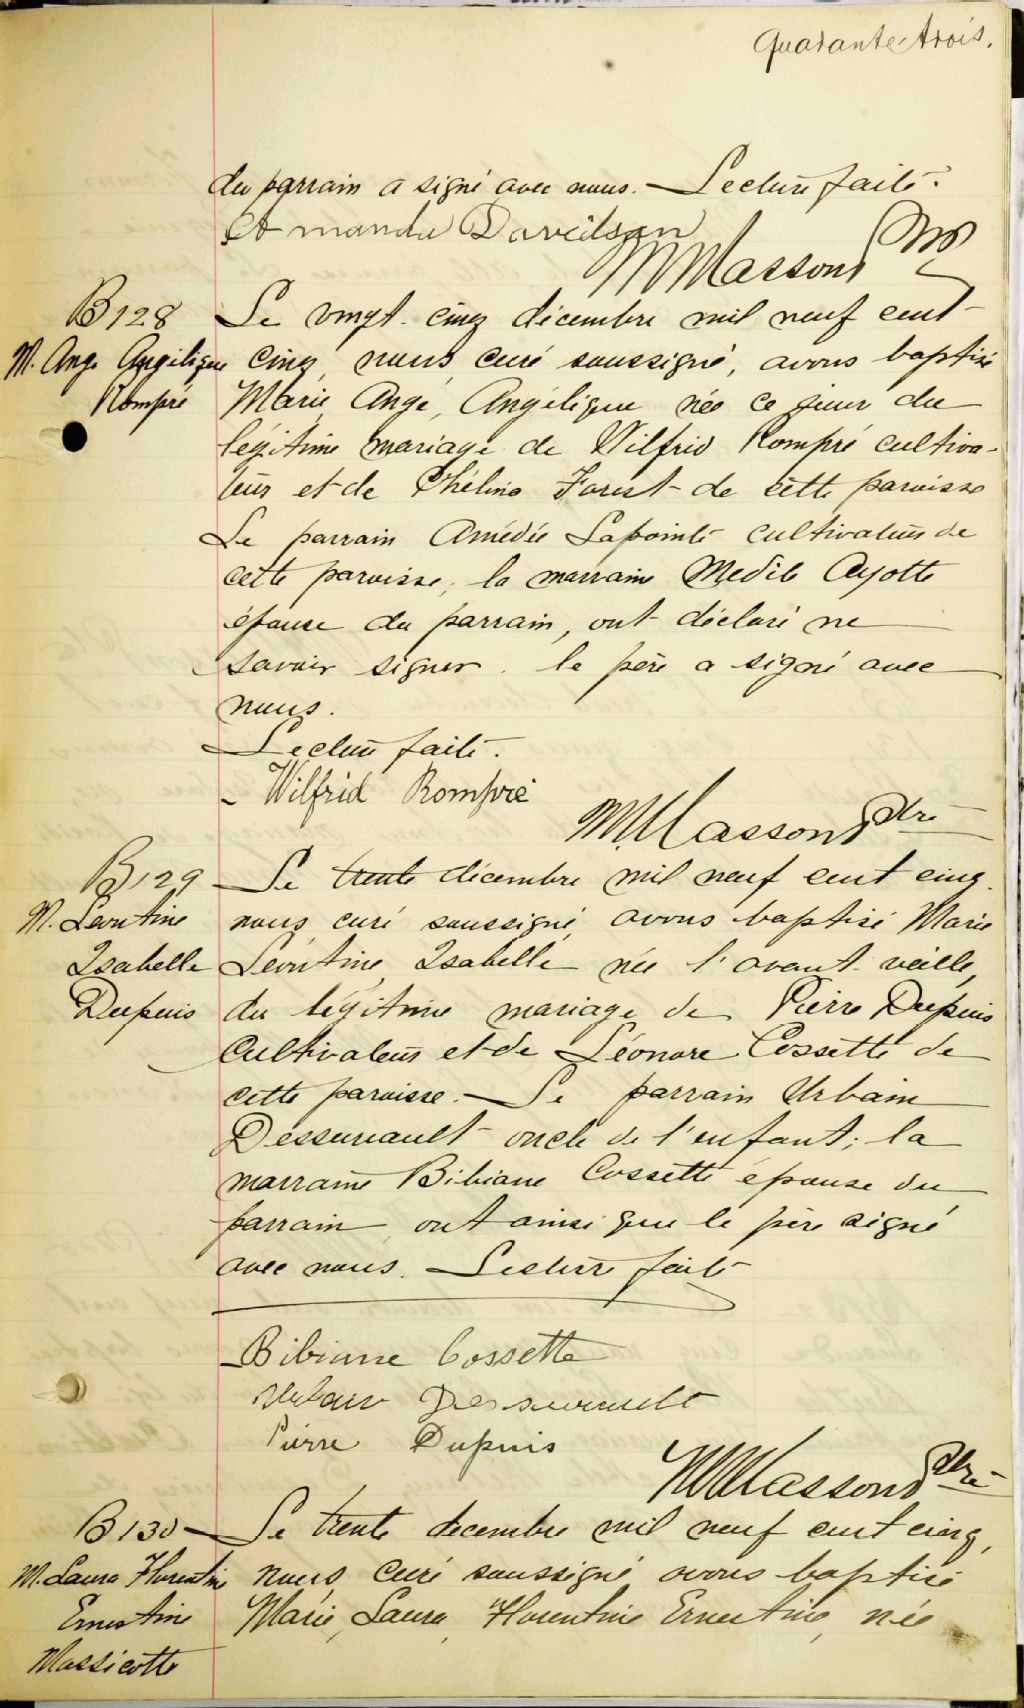 Quarante-trois.
du parrain a signé avec nous. — Lecture faite.
Amanda Davidson
M Masson Ptre
B 128
M. Ange Angélique
Rompré
Le vingt-cinq décembre mil neuf cent
cinq, nous curé soussigné, avons baptisé
Marie, Ange, Angelique née ce jour du
légitime mariage de Wilfrid Rompré cultiva-
teur et de Phélina Forest de cette paroisse
Le parrain Amédée Lapointe cultivateur de
cette paroisse, la marraine Medile Ayotte
épouse du parrain, ont déclaré ne
savoir signer. le père a signé avec
nous.
Lecture faite.
Wilfrid Rompré
M Masson Ptre
B 129
M. Léontine
Isabelle
Dupuis
Le trente décembre mil neuf cent cinq
nous curé soussigné avons baptisé Marie
Léontine Isabelle née l'avant-veille,
du légitime mariage de Pierre Dupuis
Cultivateur et de Léonore Cossette de
cette paroisse. — Le parrain Urbain
Dessureault oncle de l'enfant; la
marraine Bibiane Cossette épouse du
parrain, ont ainsi que le père signé
avec nous. Lecture faite
Bibiane Cossette
Urbain Dessureault
Pierre Dupuis
M Masson Ptre
B 130
M. Laura Florentine
Ernestine
Massicotte
Le trente decembre mil neuf cent cinq,
nous, curé soussigné avons baptisé
Marie, Laura, Florentine Ernestine, née